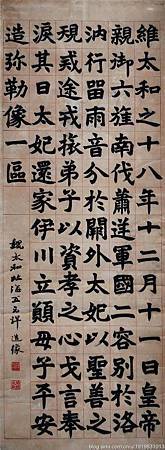 維太和之十八年十二月十一日皇帝
親御六旌南伐蕭逆軍國二容別於洛
汭行留兩音分於闕外太妃以聖善之
規戒途戎旅弟子以資孝之心戈言奉
淚其日太妃還家伊川立願母子平安
造彌勒像一區
魏太和北海王元詳造像